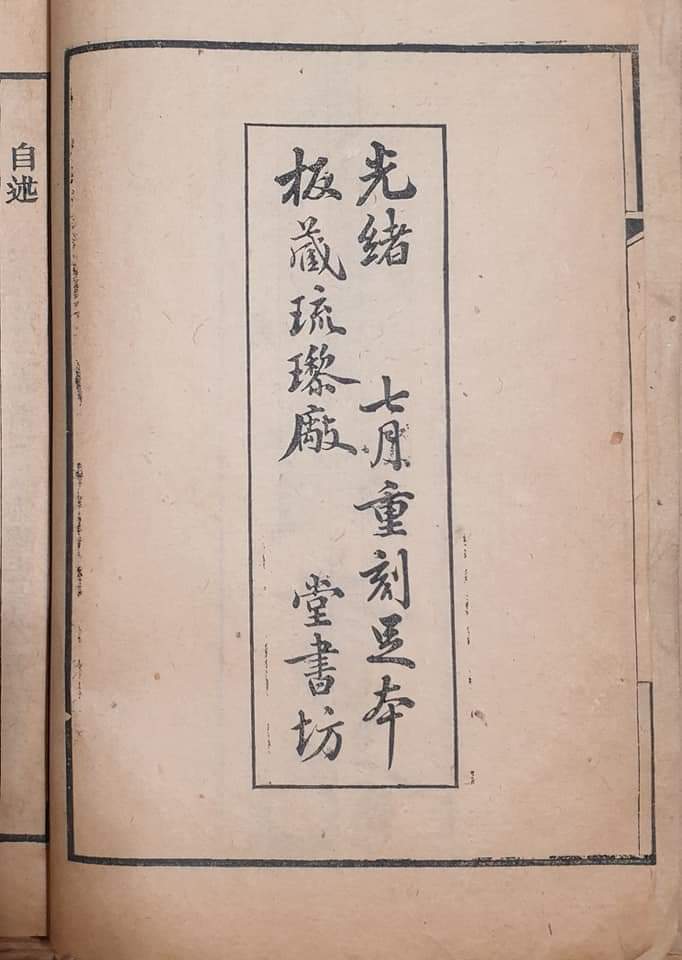 光緒 七月重刻足本
板藏琉璃厰 堂書坊
自述